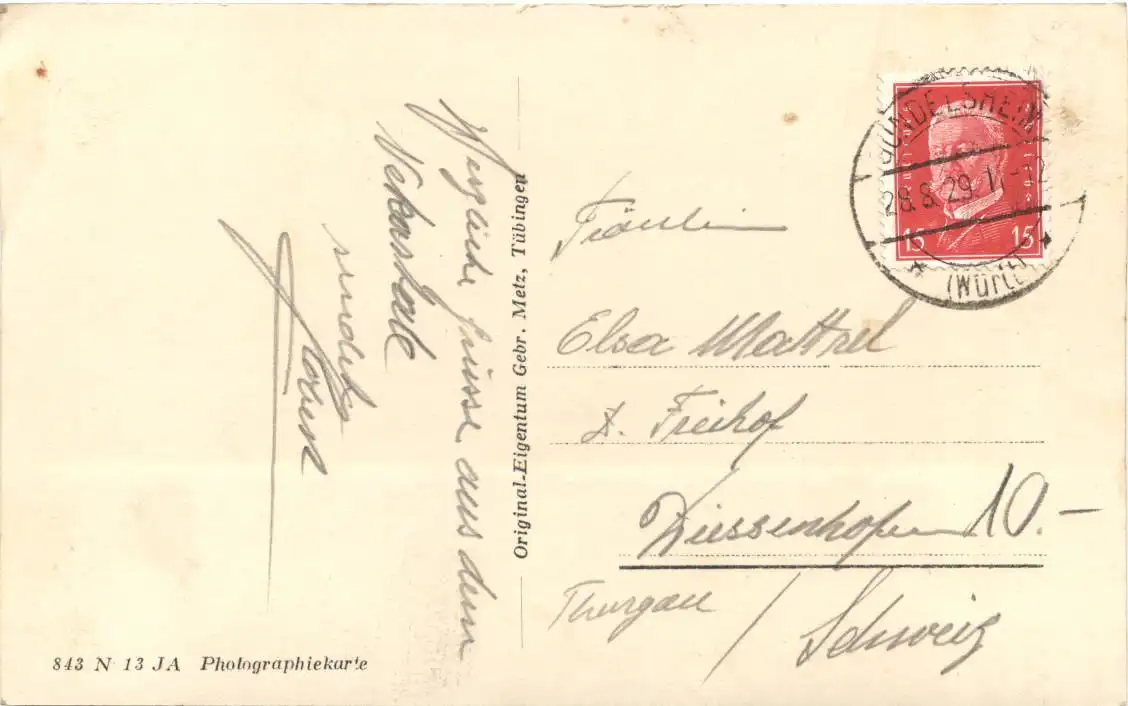 Herzliche Grüsse aus dem
Nekartale
sendet
Original-Eigentum Gebr. Metz, Tübingen
843 N 13 JA Photographiekarte
GUNDELSHEIM
28.8.29.
(Württ)
15 15
Fräulein
Elsa
z. Freihof
Diessenhofen 10.-
Thurgau / Schweiz